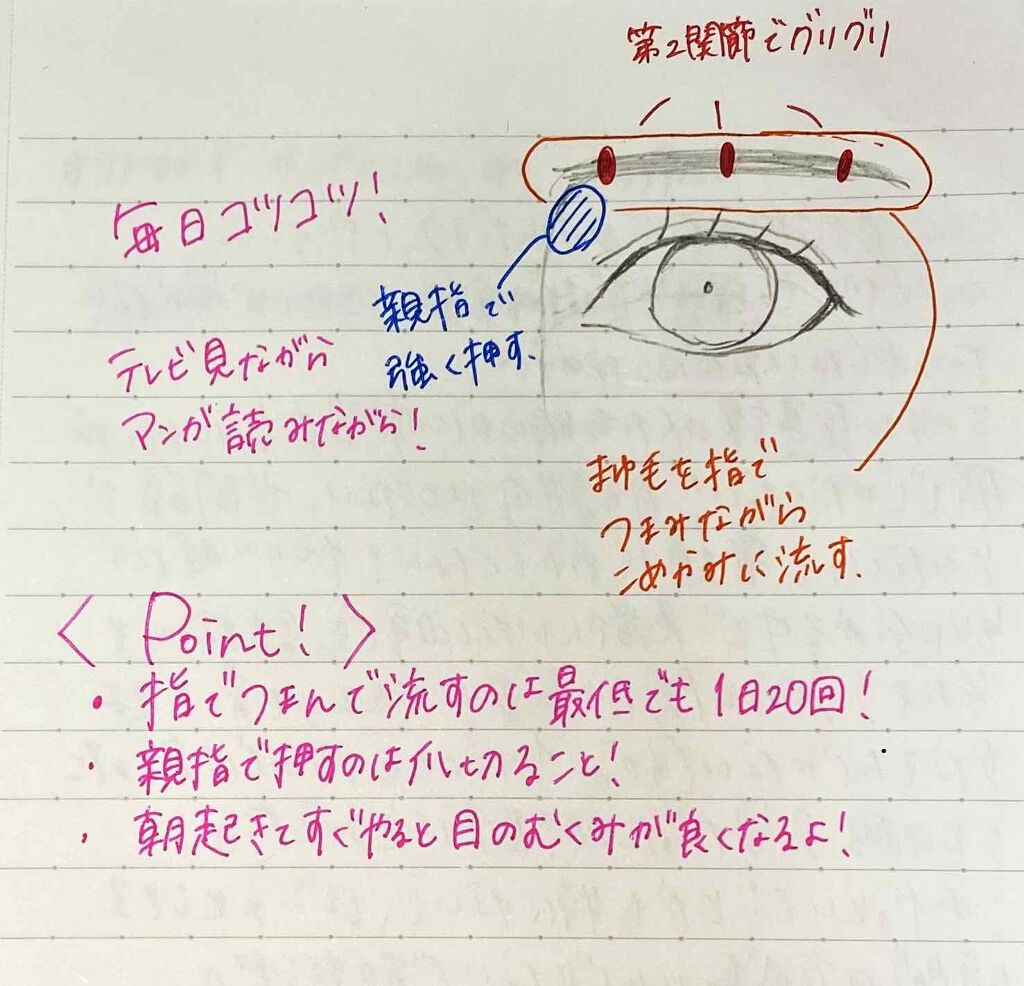 第2関節でグリグリ
毎日コツコツ!
親指で
強く押す.
テレビ見ながら
マンガ読みながら!
まゆ毛を指で
つまみながら
こめかみに流す.
〈 Point! 〉
・指でつまんで流すのは最低でも1日20回!
・親指で押すのは爪切ること!
・朝起きてすぐやると目のむくみが良くなるよ!